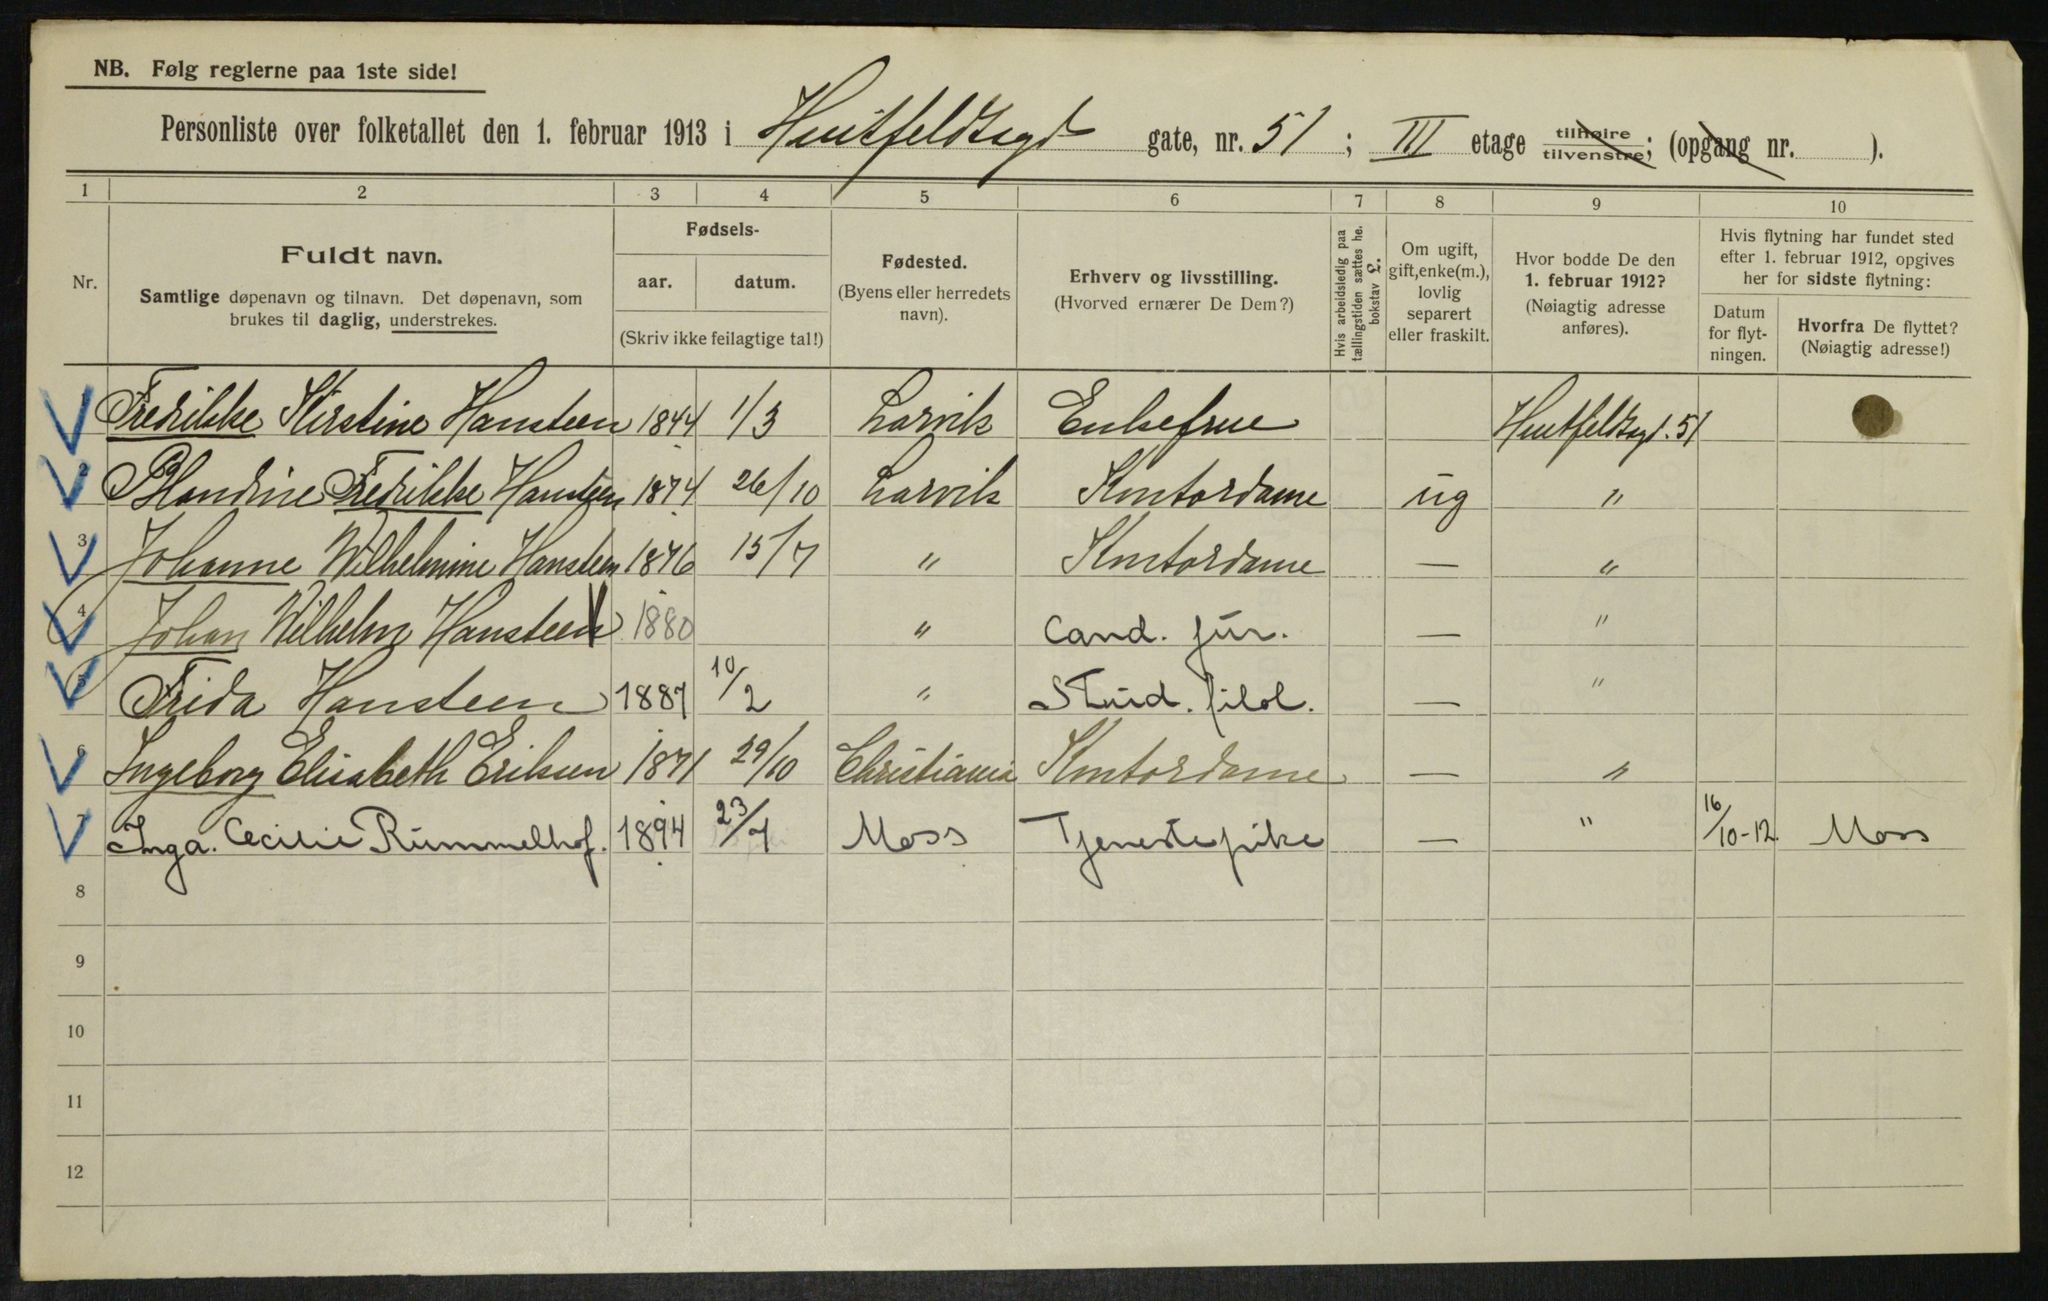 NB. Følg reglerne paa 1ste side!
Personliste over folketallet den 1. februar 1913 i Huitfeldtsgd gate, nr. 51 ; III etage tilhøire tilvenstre; (opgang nr. ).
1 2 3 4 5 6 7 8 9 10
Nr.
Fuldt navn.
Samtlige døpenavn og tilnavn. Det døpenavn, som
brukes til daglig, understrekes.
Fødsels-
aar. datum.
(Skriv ikke feilagtige tal!)
Fødested.
(Byens eller herredets
navn).
Erhverv og livsstilling.
(Hvorved ernærer De Dem?)
Hvis arbeidsledig paa
tællingstiden sættes he.
bokstav L.
Om ugift,
gift, enke(m.),
lovlig
separert
eller fraskilt.
Hvor bodde De den
1. februar 1912?
(Nøiagtig adresse
anføres).
Hvis flytning har fundet sted
efter 1. februar 1912, opgives
her for sidste flytning:
Datum
for flyt-
ningen.
Hvorfra De flyttet?
(Nøiagtig adresse!)
Fredrikke Kirstine Hansteen 1844 1/3 Larvik Enkefrue Huitfeldtsgt. 51
2 Blandine Fredrikke Hansteen 1874 26/10 Larvik Kontordame ug "
3 Johanne Wilhelmine Hansteen 1876 15/7 " Kontordame — "
4 Johan Wilhelm Hansteen 1880 " Cand. jur. — "
5 Frida Hansteen 1887 10/2 " Stud. filol. — "
6 Ingeborg Elisabeth Eriksen 1871 29/10 Christiania Kontordame — "
7 Inga. Cecilie Rummelhof. 1894 23/7 Moss Tjenestepike — " 16/10-12. Moss
8
9
10
11
12